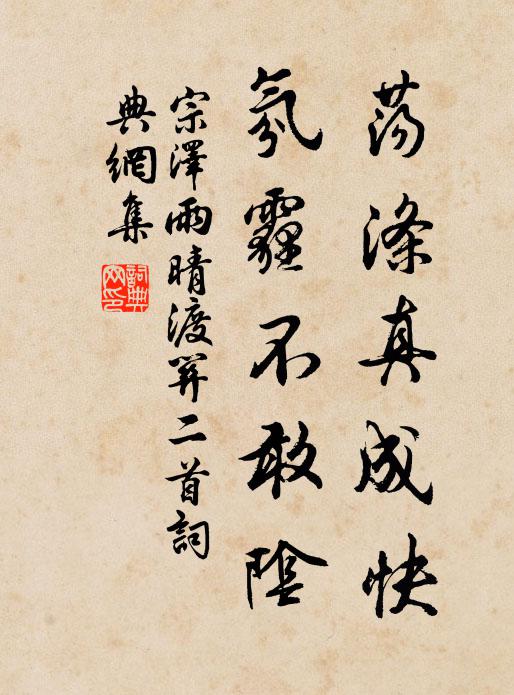 荡涤真成快
氛霾不敢陰
宗澤雨晴渡關二首詞
典網集
詞典網印